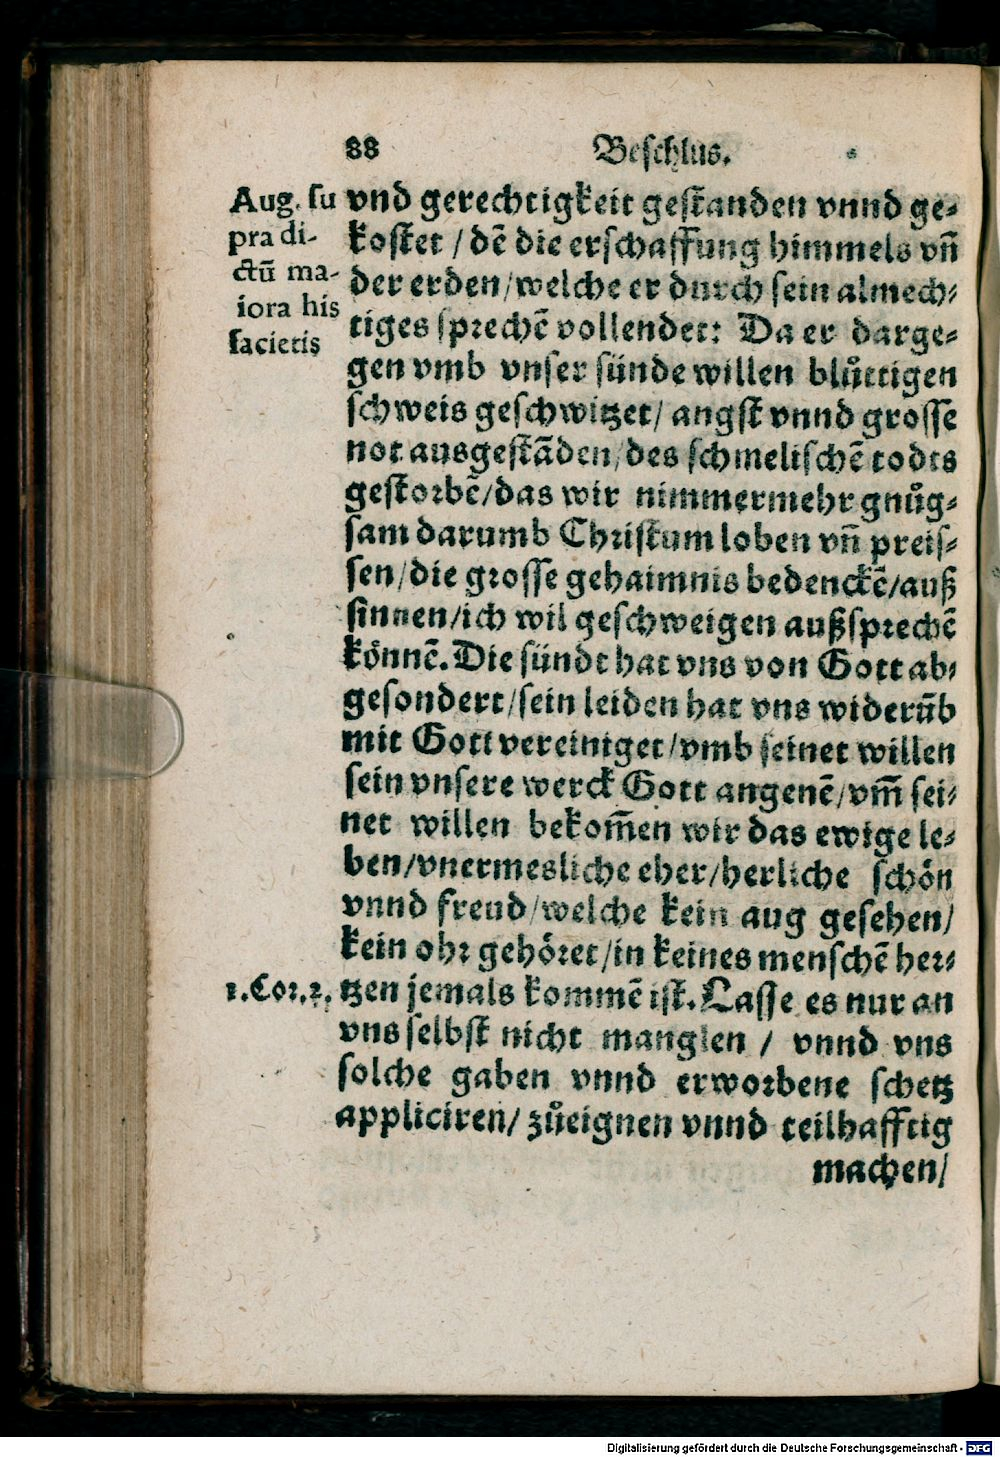 88 Beschlus.
Aug. su
pra di-
ctū ma-
iora his
facietis
vnd gerechtigkeit gestanden vnnd ge-
kostet / dē die erschaffung himmels vn̄
der erden/welche er durch sein almech-
tiges sprechē vollendet: Da er darge-
gen vmb vnser sünde willen blůttigen
schweis geschwitzet/ angst vnnd grosse
not ausgestāden/des schmelischē todts
gestorbē/das wir nimmermehr gnůg-
sam darumb Christum loben vn̄ preis-
sen/die grosse gehaimnis bedenckē/auß
sinnen/ich wil geschweigen außsprechē
könnē. Die sündt hat vns von Gott ab-
gesondert/sein leiden hat vns widerūb
mit Gott vereiniget/vmb seinet willen
sein vnsere werck Gott angenē/vm̄ sei-
net willen bekom̄en wir das ewige le-
ben/vnermesliche eher/herliche schön
vnnd freud/welche kein aug gesehen/
kein ohr gehöret/in keines menschē her-
1.Cor.2. tzen jemals kommē ist. Lasse es nur an
vns selbst nicht manglen / vnnd vns
solche gaben vnnd erworbene schetz
appliciren/ zůeignen vnnd teilhafftig
machen/
Digitalisierung gefördert durch die Deutsche Forschungsgemeinschaft - DFG